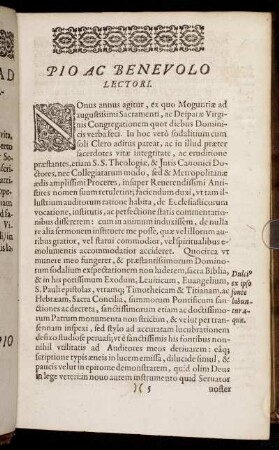 PIO AC BENEVOLO
LECTORI.
NOnus annus agitur, ex quo Moguntiæ ad
augustissimi Sacramenti, ac Deiparæ Virgi-
nis Congregationem quot diebus Domini-
cis verba feci. In hoc verò sodalitium cum
soli Clero aditus pateat, ac in illud præter
sacerdotes vitæ integritate, ac eruditione
præstantes, etiam S.S. Theologiæ, & Juris Canonici Do-
ctores, nec Collegiatarum modo, sed & Metropolitanæ
ædis amplissimi Proceres, insuper Reverendissimi Anti-
stites nomen suum tulerint; faciendum duxi, vt tam il-
lustrium auditorum ratione habita, de Ecclesiasticorum
vocatione, institutis, ac perfectione statis commentatio-
nibus dissererem: cum in animum induxissem, de nulla
re alia sermonem instruere me posse, quæ vel illorum au-
ribus gratior, vel statui commodior, vel spiritualibus e-
molumentis accommodatior accideret. Quocirca vt
munere meo fungerer, & præstantissimorum Domino-
rum sodalium exspectationem non luderem, sacra Biblia,
& in his potissimum Exodum, Leviticum, Euangelium,
S. Pauli epistolas, vtramq; Timotheicam & Titianam, ac
Hebræam, Sacra Concilia, summorum Pontificum san-
ctiones ac decreta, sanctissimorum etiam ac doctissimo-
rum Patrum monumenta non strictim, & velut per tran-
sennam inspexi, sed stylo ad accuratam lucubrationem
defixo studiose perausi; vt è sanctissimis his fontibus non-
nihil vtilitatis ad Auditores meos derivarem: eâq;
scriptione typis æneis in lucem emissa, dilucide simul, &
paucis velut in epitome demonstrarem, quid olim Deus
in lege veteri in nouo autem instrumento quid Seruator
)( 5 noster
Dulci°
ex ipso
fonte
bibun-
tur a-
quæ.